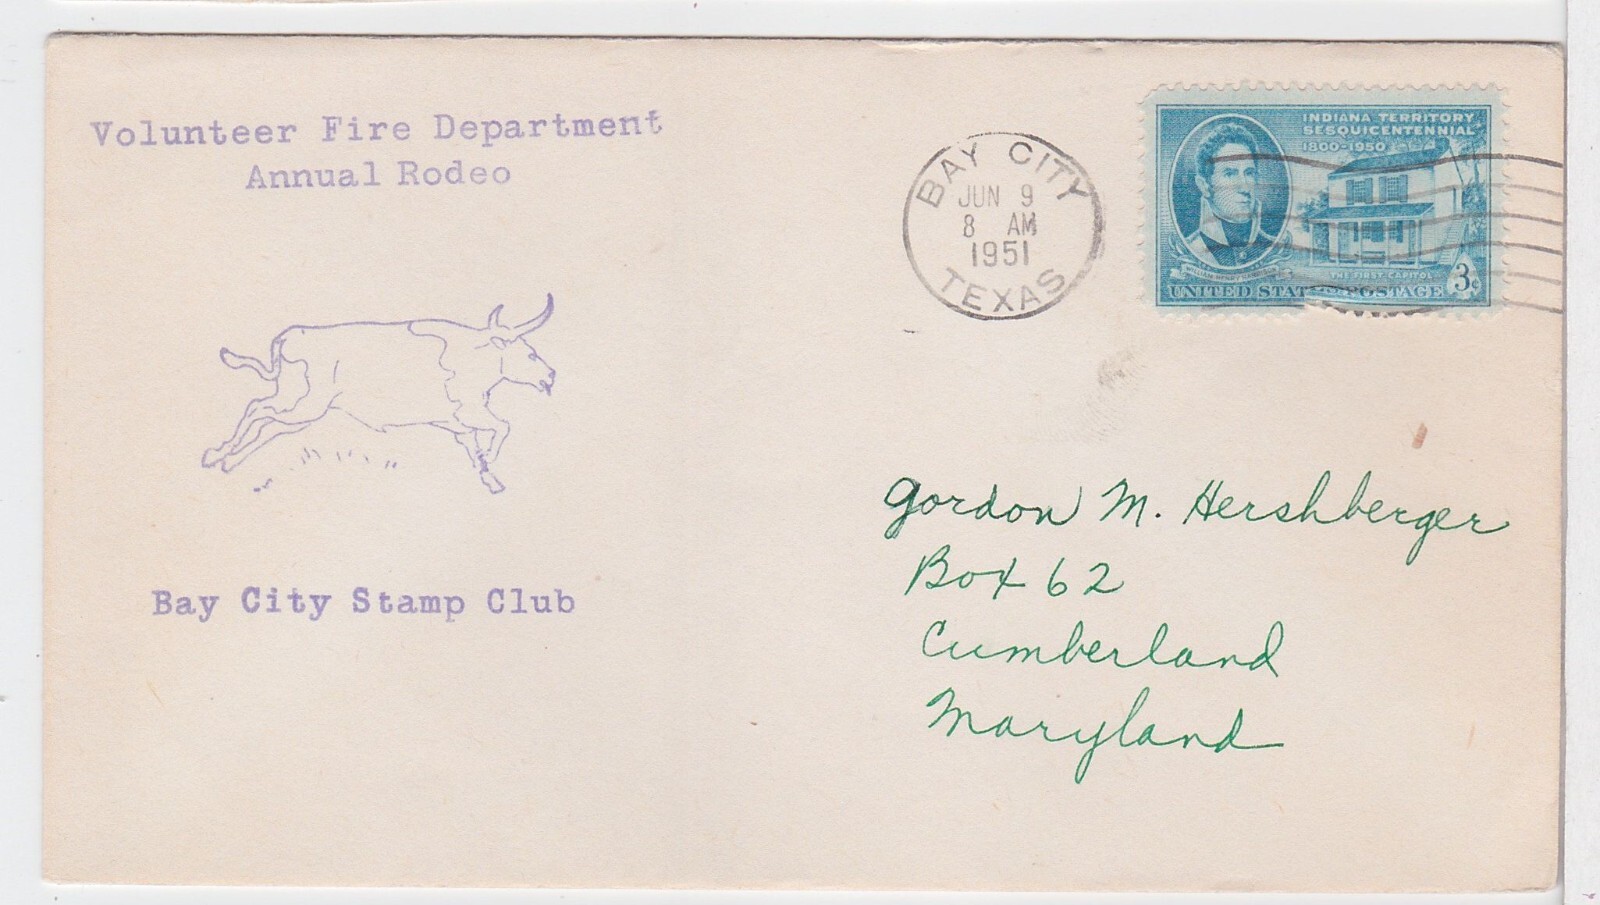 Volunteer Fire Department
Annual Rodeo
BAY CITY
JUN 9
8 AM
1951
TEXAS
INDIANA TERRITORY
SESQUICENTENNIAL
1800-1950
WILLIAM HENRY HARRISON
THE FIRST CAPITOL
UNITED STATES POSTAGE 3¢
Gordon M. Hershberger
Box 62
Cumberland
Maryland
Bay City Stamp Club